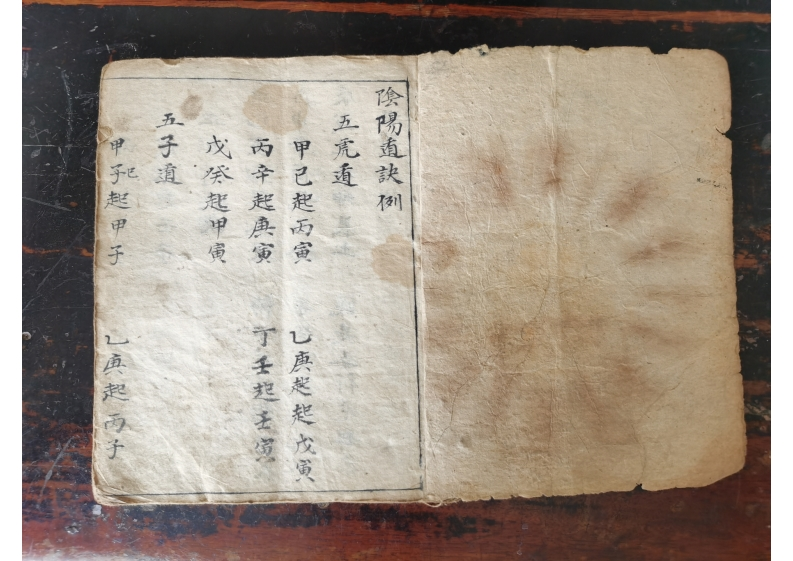 陰陽遁訣例
五虎遁
甲己起丙寅 乙庚起起戊寅
丙辛起庚寅 丁壬起壬寅
戊癸起甲寅
五子遁
甲子己起甲子 乙庚起丙子